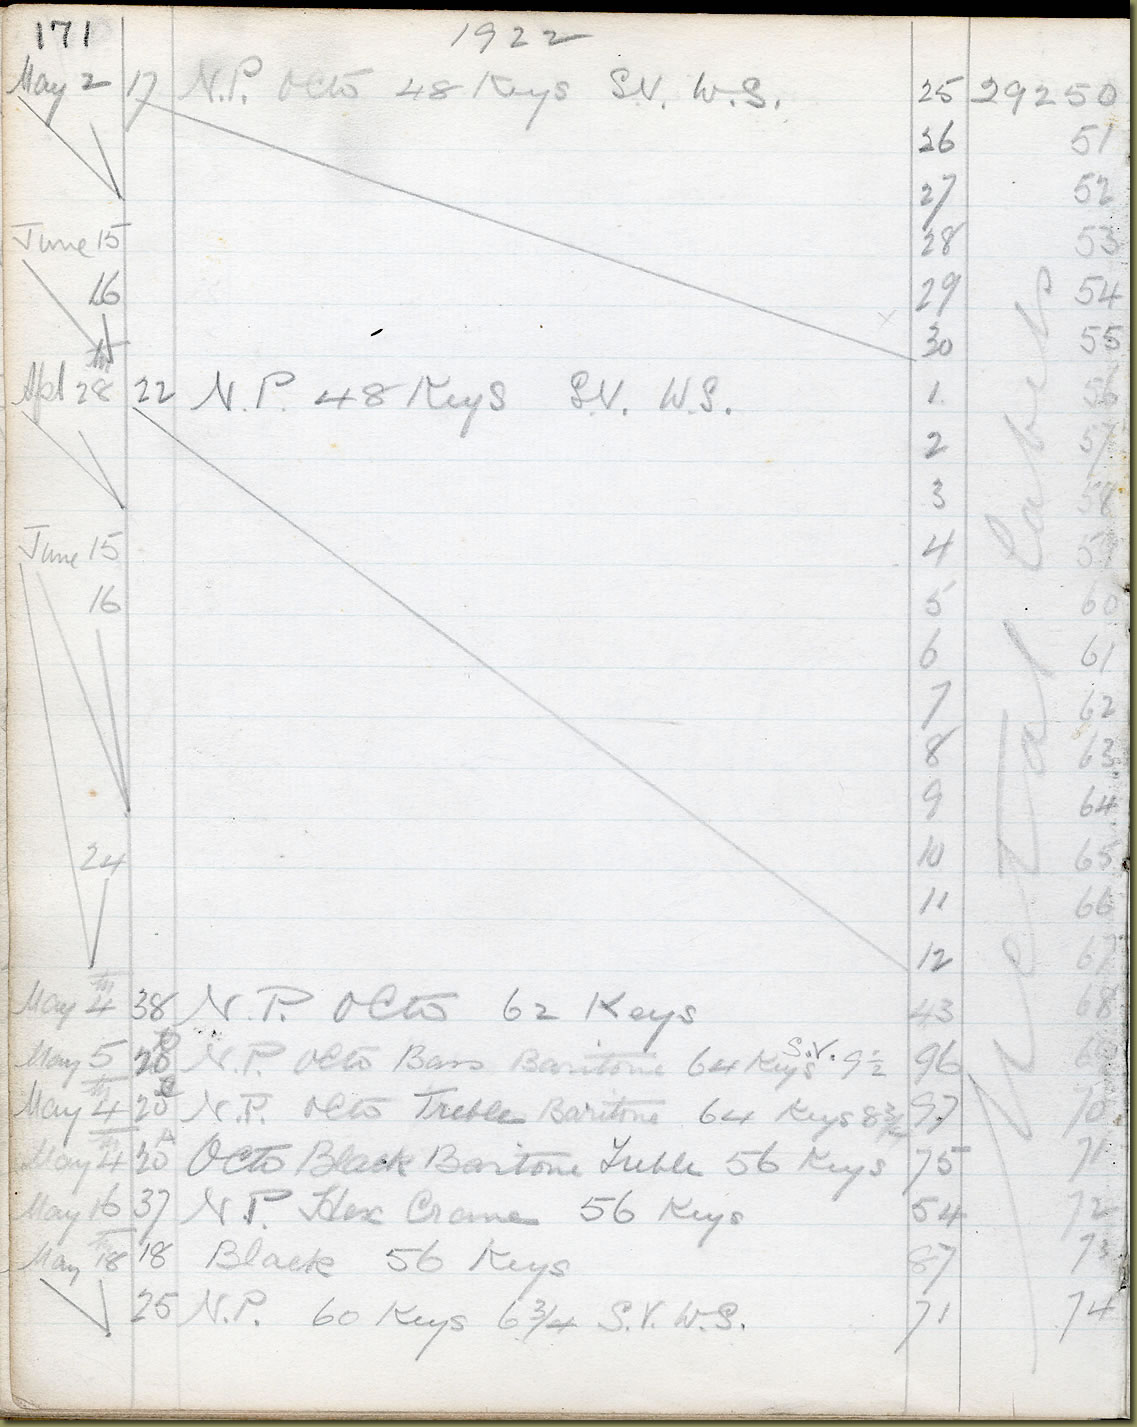 171 1922
May 2 17 N.P. Octo 48 Keys S.V. W.S. 25 29250
26 51
27 52
June 15 28 53
16 29 54
30 55
Apl 28th 22 N.P. 48 Keys S.V. W.S. 1 56
2 57
3 58
June 15 4 59
16 5 60
6 61
7 62
8 63
9 64
24 10 65
11 66
12 67
May 4th 38 N.P. Octo 62 Keys 43 68
May 5 20 N.P. Octo Bass Baritone 64 Keys S.V. 9½ 96 69
May 4th 20 N.P. Octo Treble Baritone 64 Keys 8¾ 97 70
May 4th 20A Octo Black Baritone Treble 56 Keys 75 71
May 16 37 N.P. Hex Crane 56 Keys 54 72
May 18th 18 Black 56 Keys 87 73
25 N.P. 60 Keys 6¾ S.V. W.S. 71 74
Metal Labels